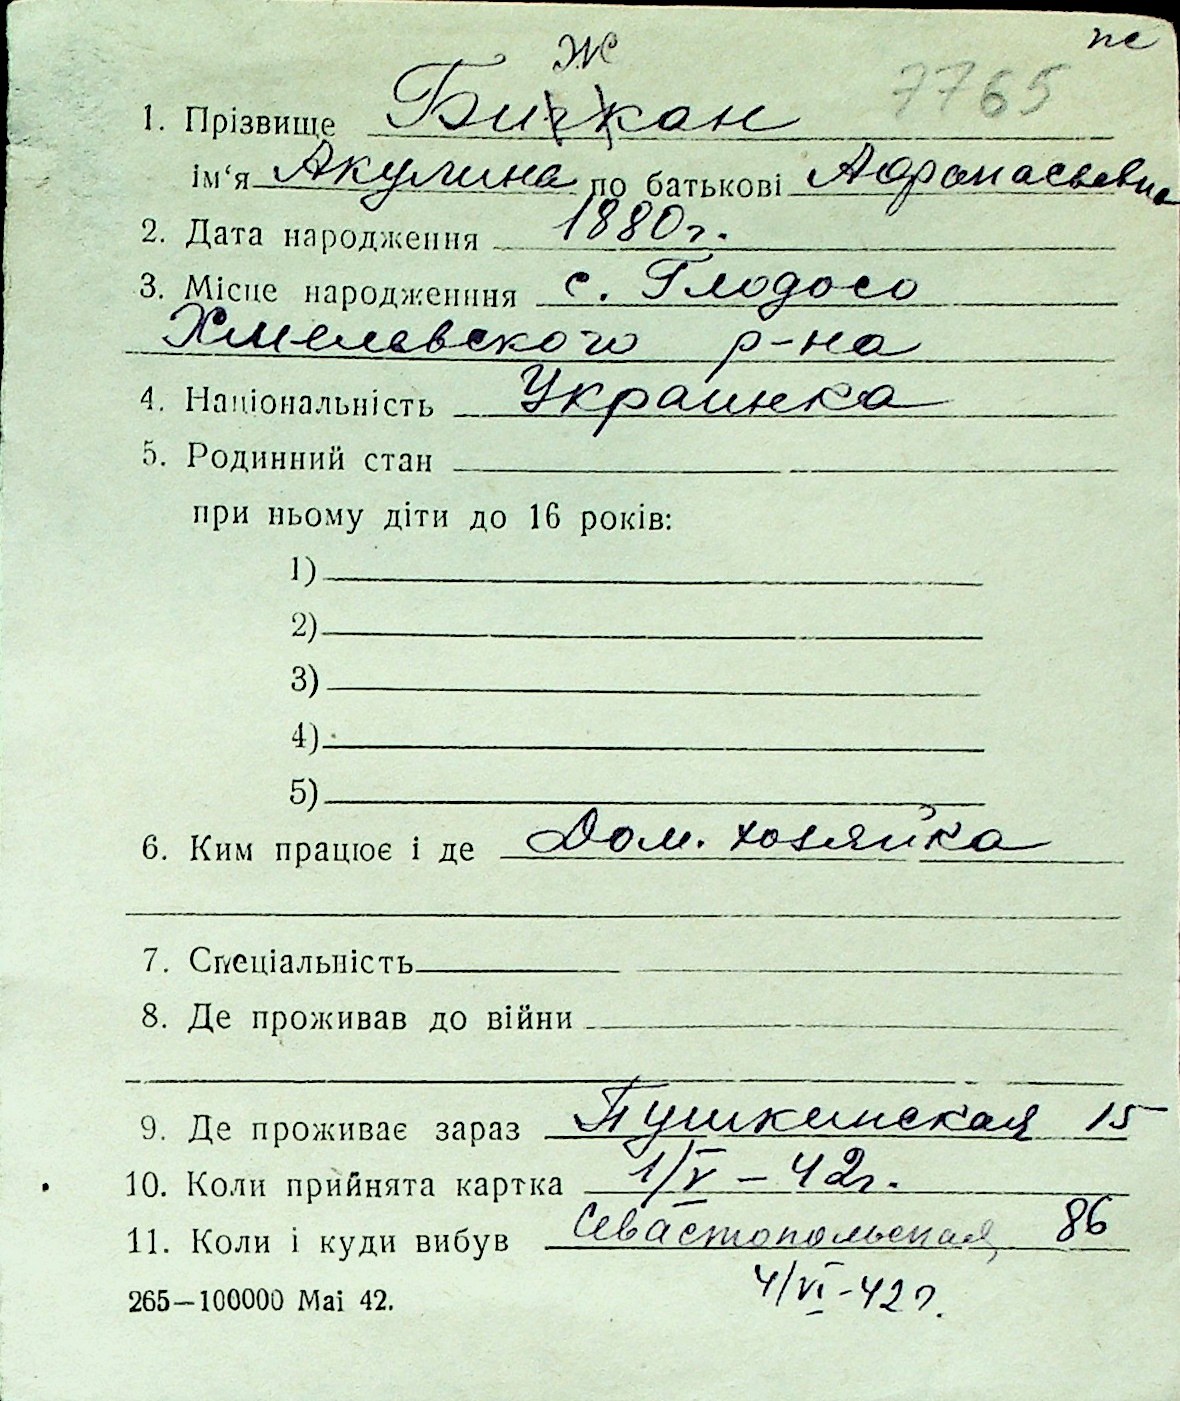 пе
Ж
7765
1. Прізвище Бичкан
ім‘я Акулина по батькові Афонасьевна
2. Дата народження 1880г.
3. Місце народженння с. Глодосо
Хмелевского р-на
4. Національність Украинка
5. Родинний стан
при ньому діти до 16 років:
1)
2)
3)
4)
5)
6. Ким працює і де Дом. хозяйка
7. Спеціальність
8. Де проживав до війни
9. Де проживає зараз Пушкинская 15
10. Коли прийнята картка 1/V – 42г.
11. Коли і куди вибув Севастопольская, 86
4/VI-42г.
265—100000 Mai 42.